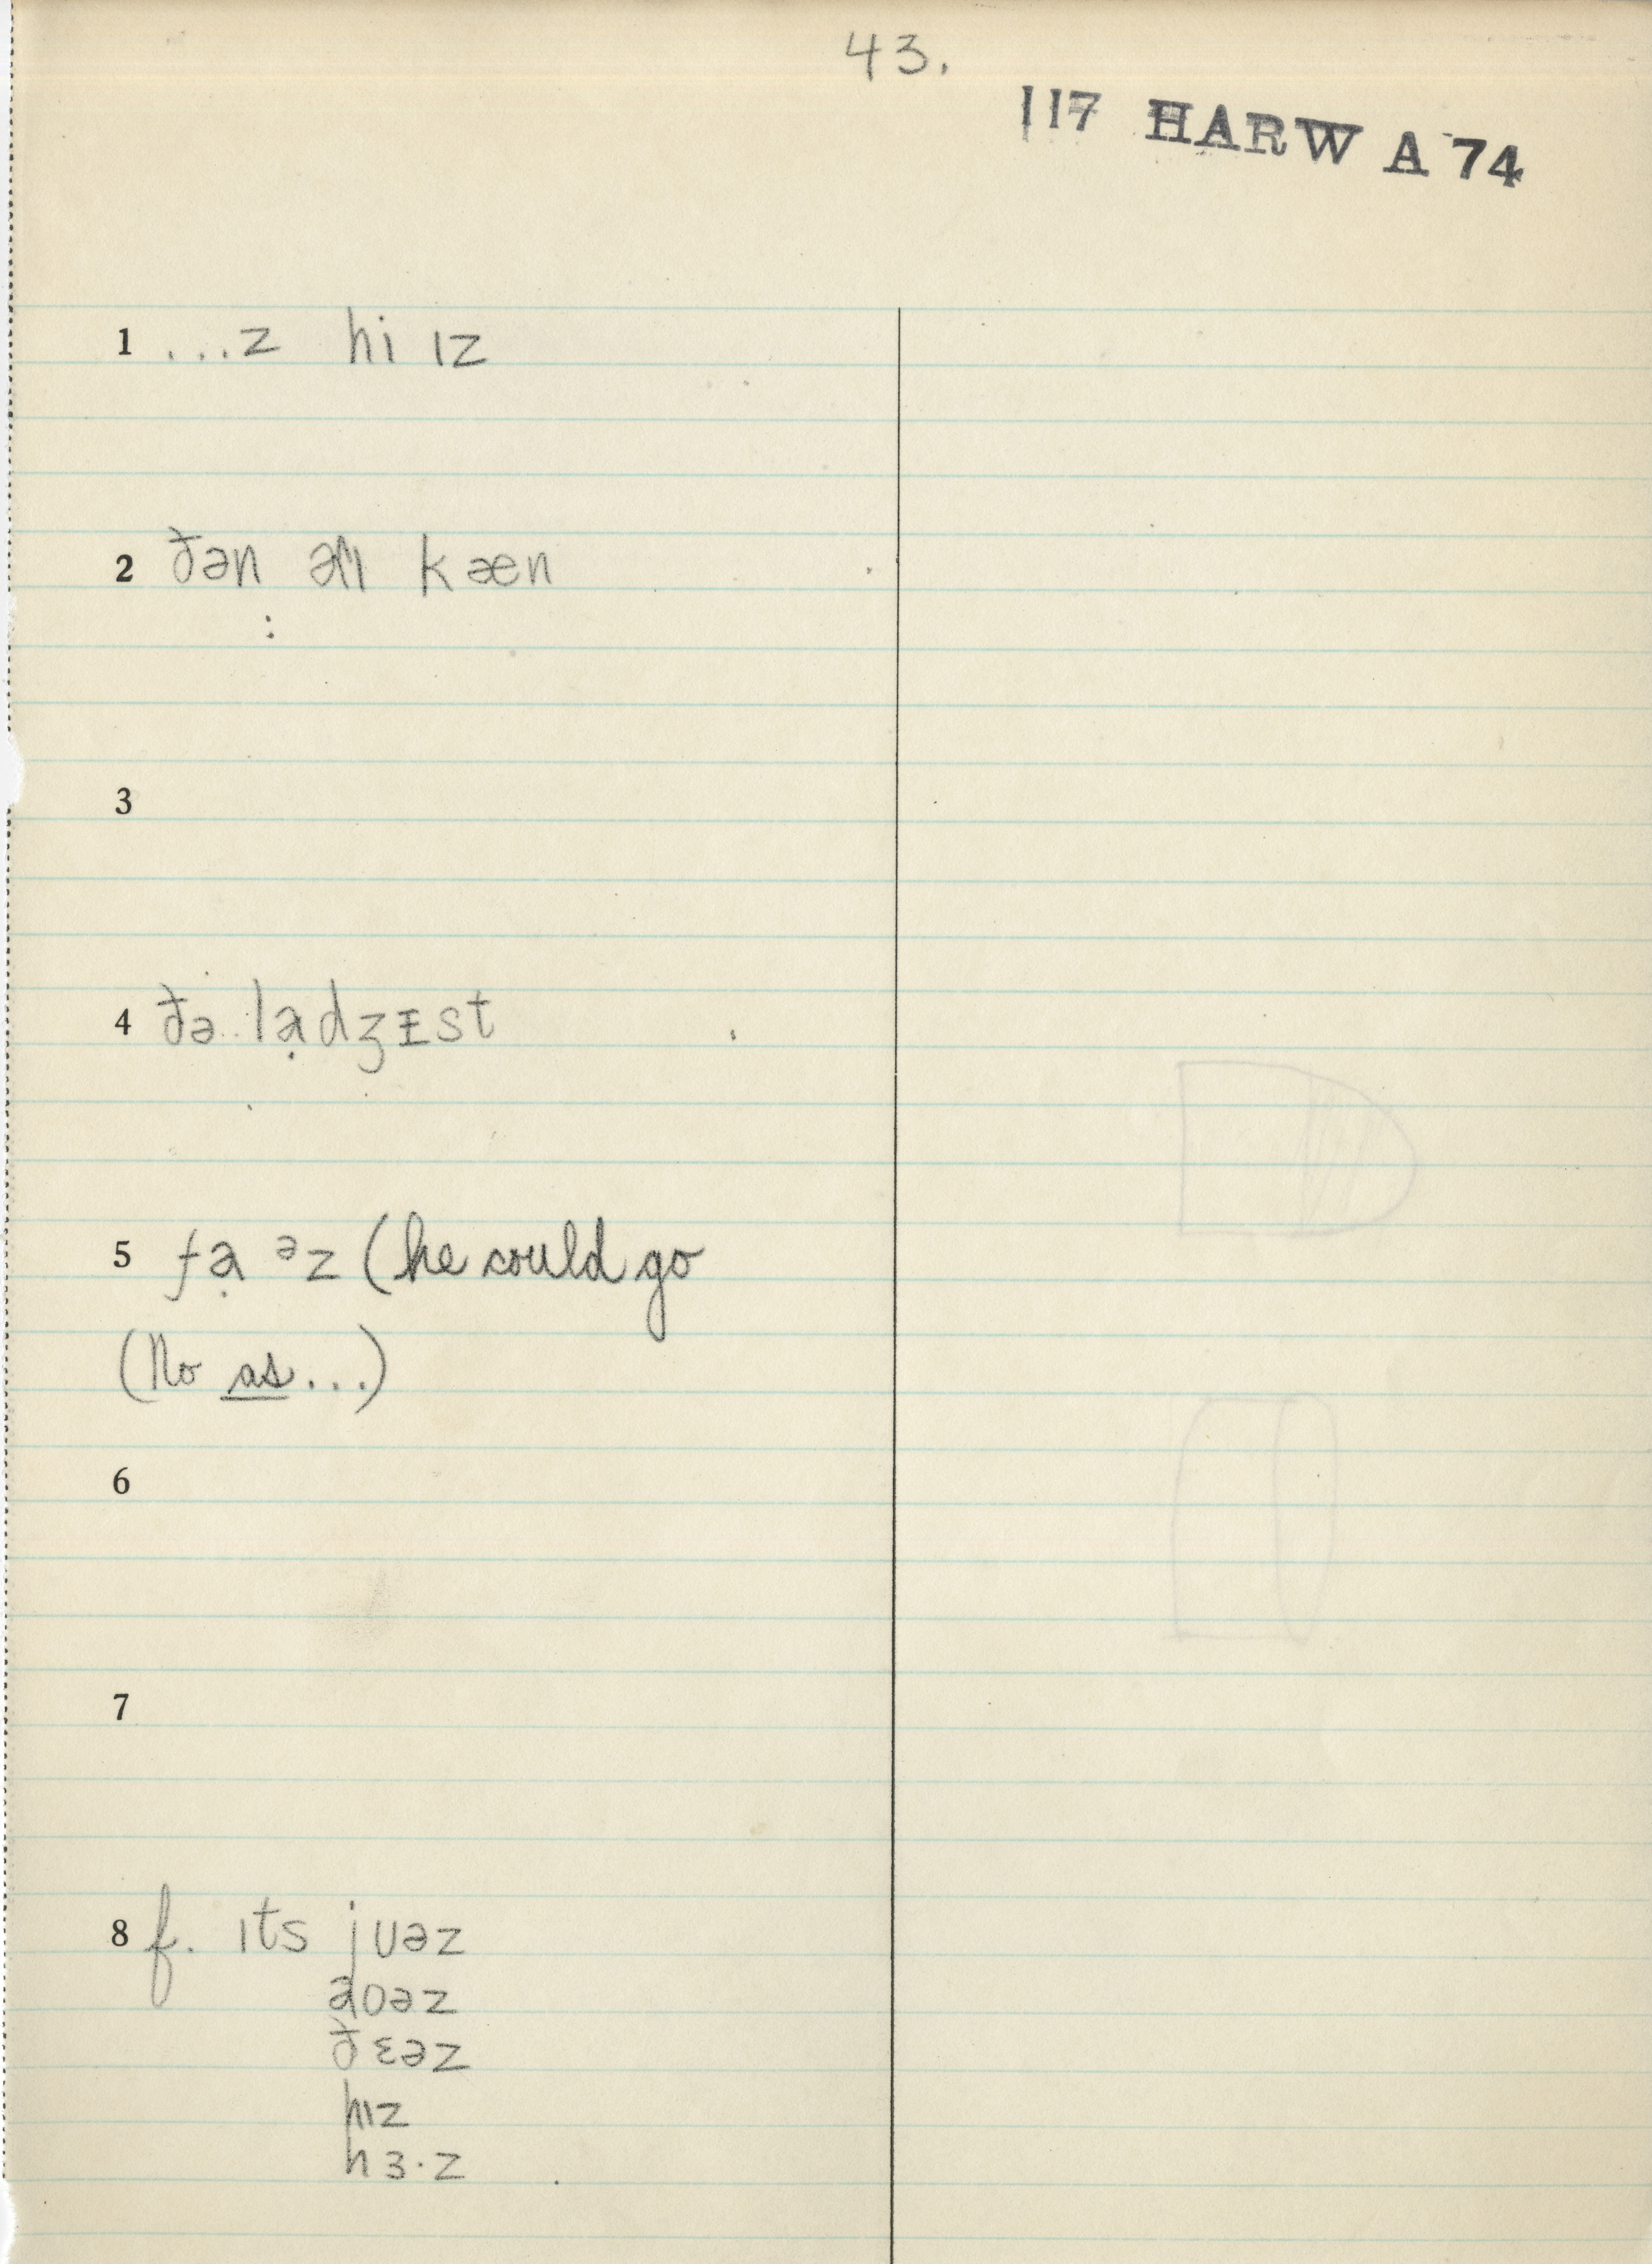 43.
117 HARW A 74
1 ...z hi ɪz
2 ðən aɪ kæn
:
3
4 ðə lạdʒɪst
5 fạ ᵊz (he could go
(No as...)
6
7
8 f. ɪts jʊəz
aʊəz
ðɛəz
hɪz
hɜ·z